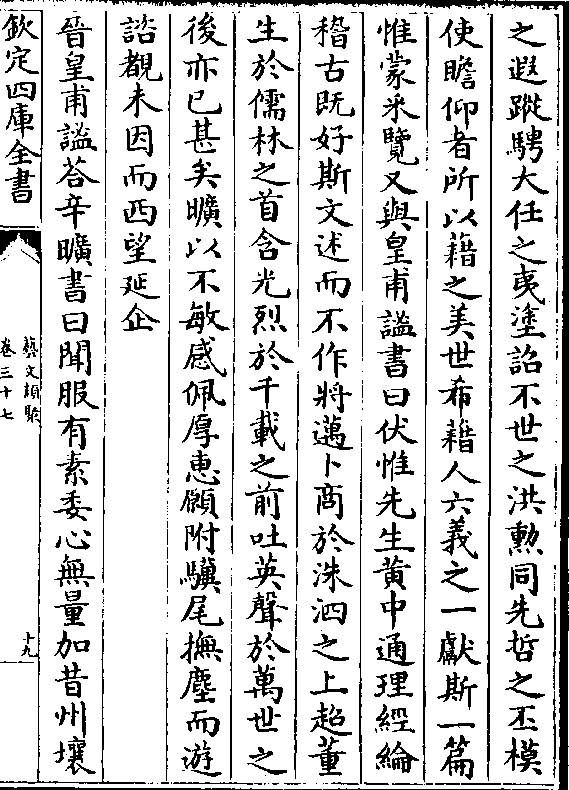 之遐蹤騁大任之夷塗詔不世之洪勲同先哲之丕模
使瞻仰者所以藉之美世希藉人六義之一獻斯一篇
惟蒙釆覽又與皇甫謐書曰伏惟先生黄中通理經綸
稽古既好斯文述而不作將邁卜商於洙泗之上超董
生於儒林之首含光烈於千載之前吐英聲於萬世之
後亦已甚矣曠以不敏感佩厚惠願附驥尾撫塵而遊
諮覩未因而西望延企
晉皇甫謐荅辛曠書曰聞服有素委心無量加昔州壤
欽定四庫全書
藝文類聚
卷三十七
十九